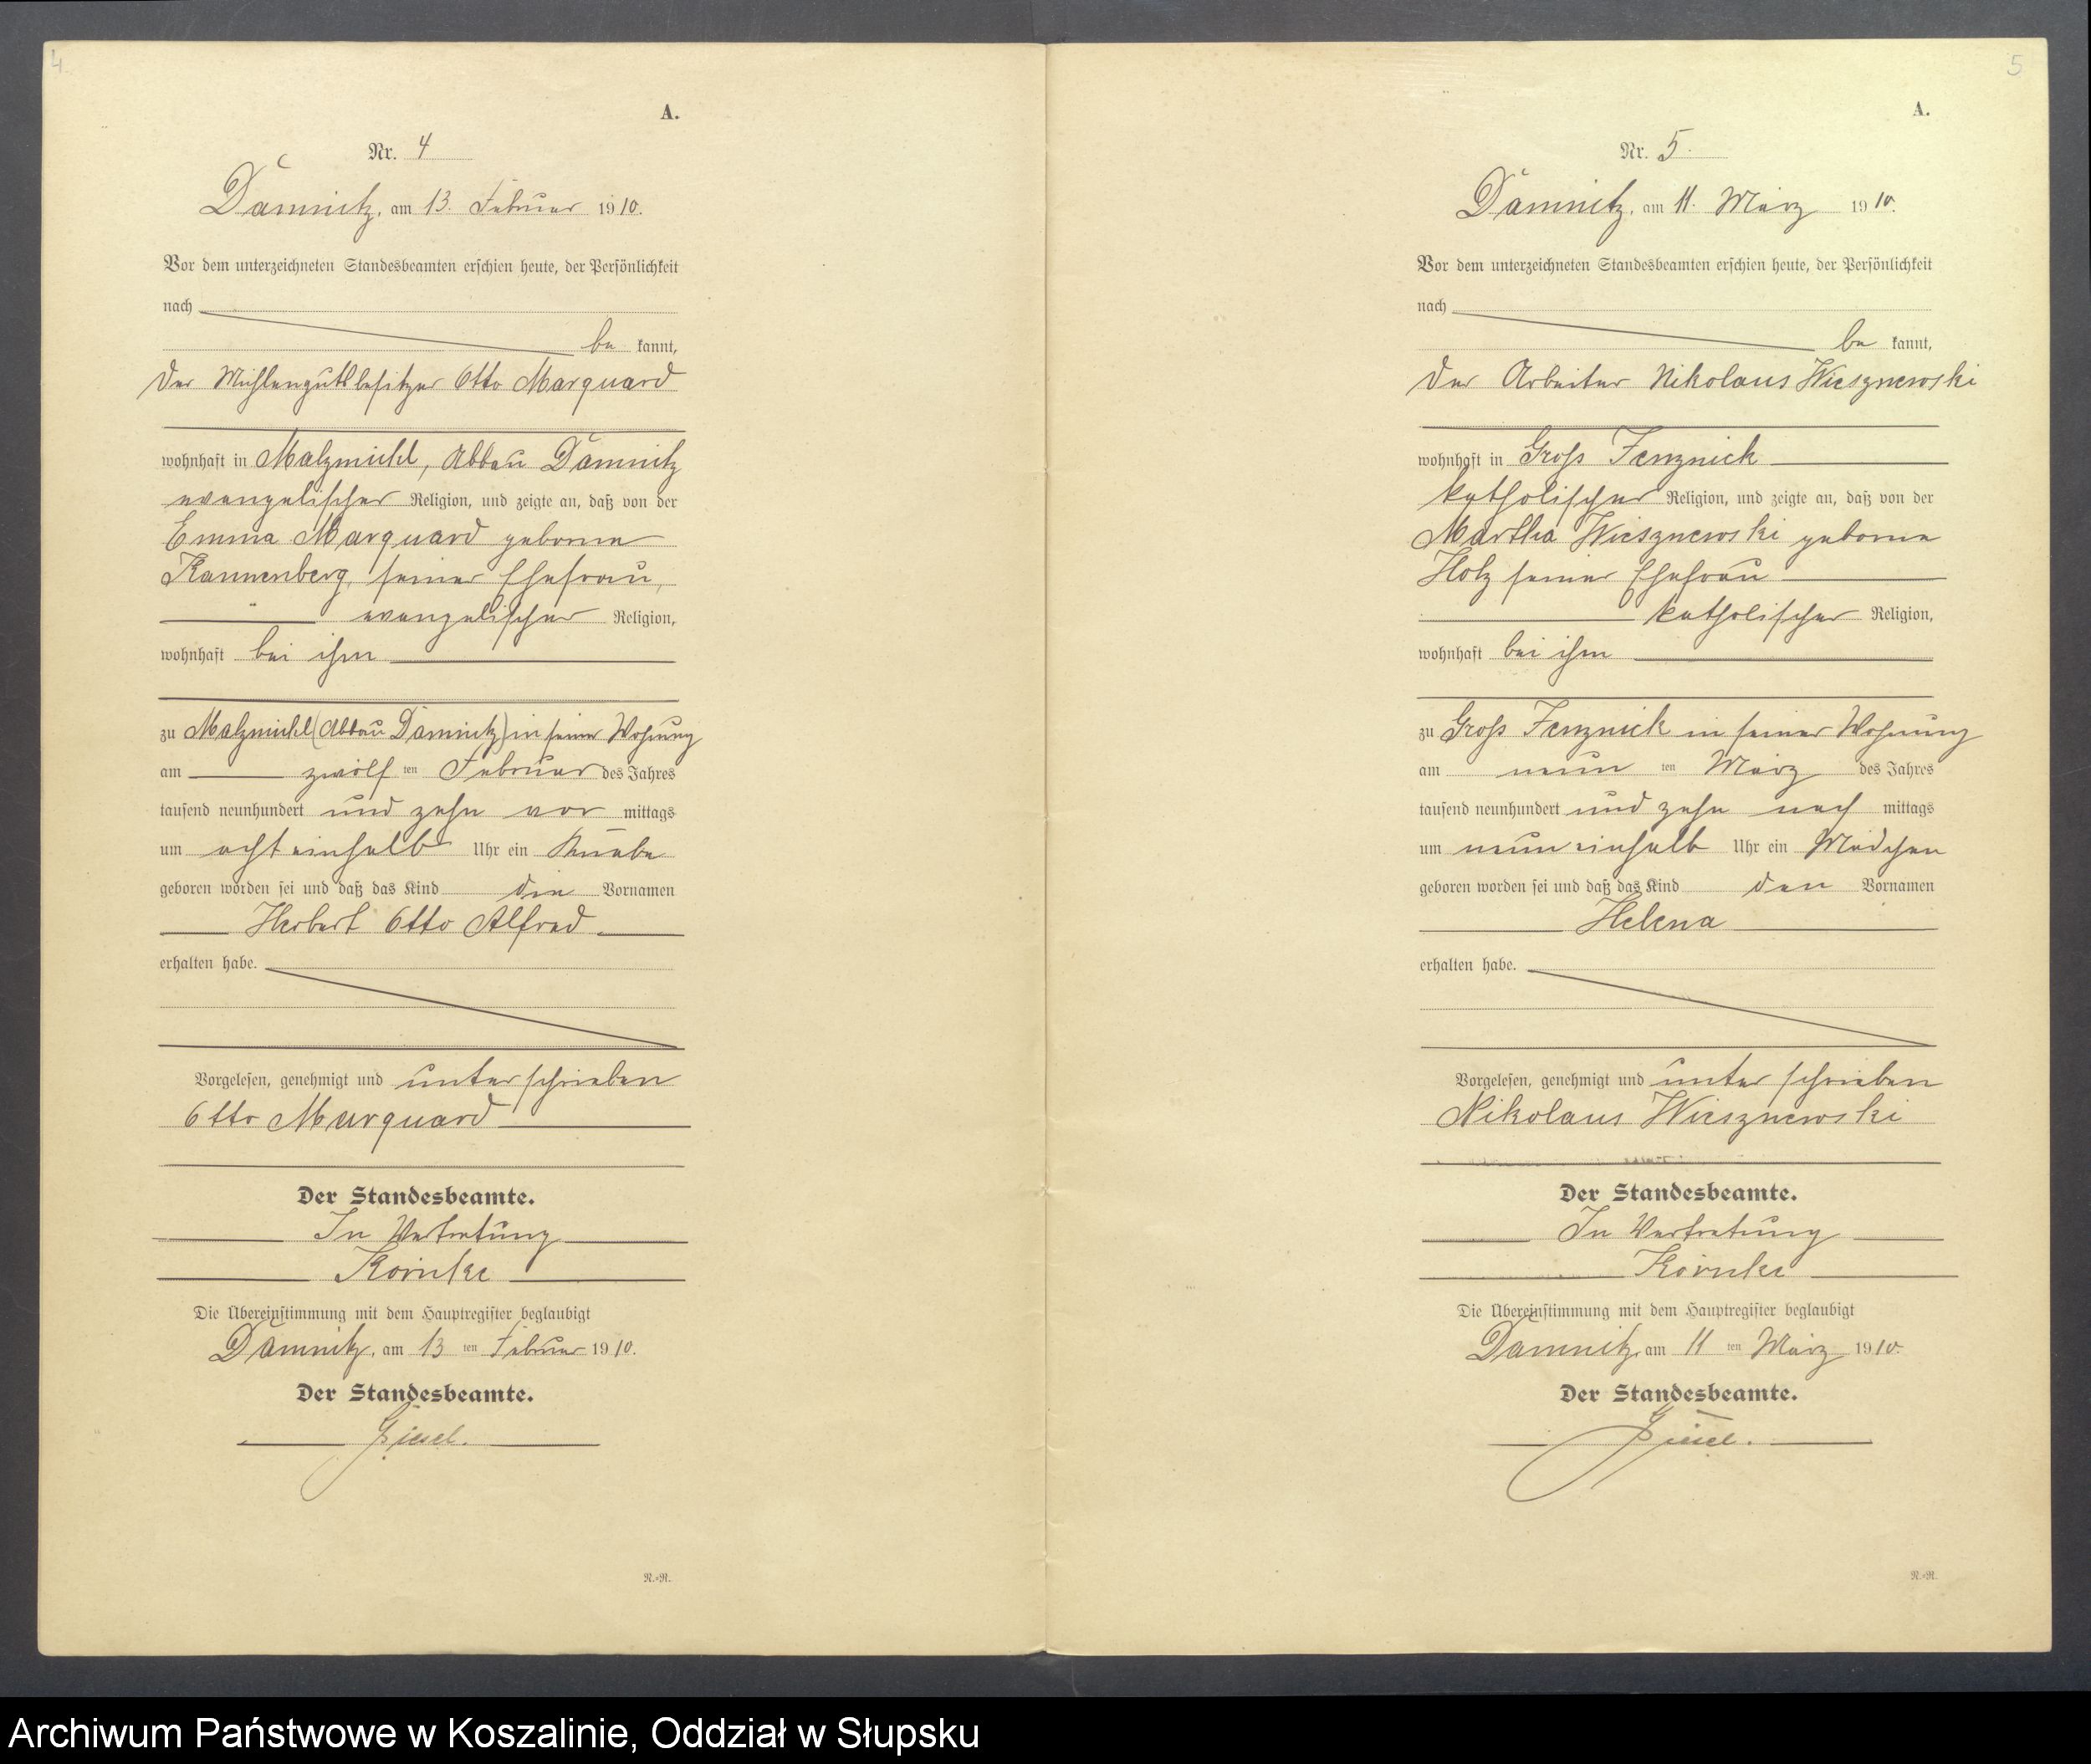 4
A.
Nr. 4
Damnitz, am 13. Februar 1910.
Vor dem unterzeichneten Standesbeamten erschien heute, der Persönlichkeit
nach
be kannt,
der Mühlengutsbesitzer Otto Marquard
wohnhaft in Malzmühl, Abbau Damnitz
evangelischer Religion, und zeigte an, daß von der
Emma Marquard geborne
Kannenberg, seiner Ehefrau,
evangelischer Religion,
wohnhaft bei ihm
zu Malzmühl (Abbau Damnitz) in seiner Wohnung
am zwölf ten Februar des Jahres
tausend neunhundert und zehn vor mittags
um acht einhalb Uhr ein Knabe
geboren worden sei und daß das Kind die Vornamen
Herbert Otto Alfred
erhalten habe.
Vorgelesen, genehmigt und unterschrieben
Otto Marquard
Der Standesbeamte.
In Vertretung
Körnke
Die Übereinstimmung mit dem Hauptregister beglaubigt
Damnitz, am 13 ten Februar 1910.
Der Standesbeamte.
Giesel.
R.=R.
5
A.
Nr. 5.
Damnitz, am 11. März 1910.
Vor dem unterzeichneten Standesbeamten erschien heute, der Persönlichkeit
nach
be kannt,
der Arbeiter Nikolaus Wiesznewski
wohnhaft in Gross Jenznick
katholischer Religion, und zeigte an, daß von der
Martha Wiesznewski geborne
Holz seiner Ehefrau
katholischer Religion,
wohnhaft bei ihm
zu Gross Jenznick in seiner Wohnung
am neun ten März des Jahres
tausend neunhundert und zehn nach mittags
um neun einhalb Uhr ein Mädchen
geboren worden sei und daß das Kind den Vornamen
Helena
erhalten habe.
Vorgelesen, genehmigt und unterschrieben
Nikolaus Wiesznewski
Der Standesbeamte.
In Vertretung
Körnke
Die Übereinstimmung mit dem Hauptregister beglaubigt
Damnitz, am 11 ten März 1910.
Der Standesbeamte.
Giesel.
R.=R.
Archiwum Państwowe w Koszalinie, Oddział w Słupsku